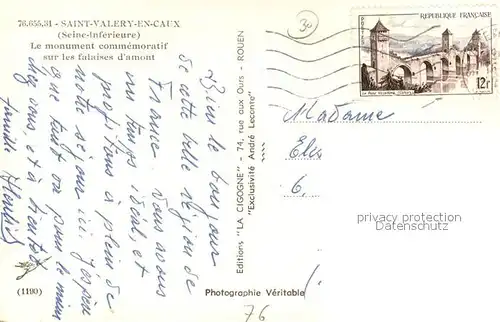 76.655,31 - SAINT-VALERY-EN-CAUX
(Seine-Inférieure)
Le monument commémoratif
sur les falaises d'amont
Bien le bonjour
de cette belle région de
France. Nous avons
un temps idéal, et
profitons à plein de
notre séjour ici. J'espère
que tout va pour le mieux
chez vous, et à bientôt
famille
(1190)
Editions "LA CIGOGNE" - 74, rue aux Ours - ROUEN
"Exclusivité André Leconte"
Photographie Véritable
76
30
POSTES
REPUBLIQUE FRANÇAISE
12F
Madame
6,
privacy protection